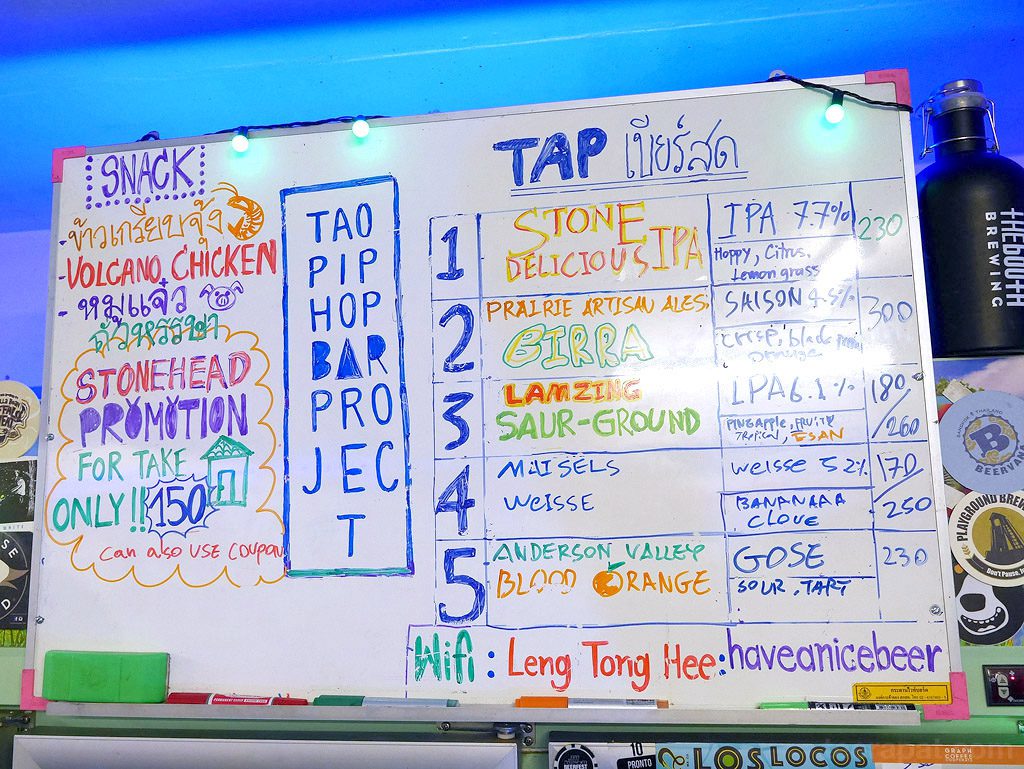 SNACK
- ข้าวเกรียบกุ้ง
- VOLCANO CHICKEN
- หมูแจ๋ว
ถั่วหรรษา
STONEHEAD
PROMOTION
FOR TAKE
ONLY!! 150
can also USE COUPON
TAO
PIP
HOP
BAR
PRO
JEC
T
TAP เบียร์สด
1 STONE DELICIOUS IPA IPA 7.7% 230
Hoppy, Citrus, Lemongrass
2 PRAIRIE ARTISAN ALES. SAISON 4.5% 300
BIRRA Crisp,
3 LAMZING IPA 6.1% 180/260
SAUR-GROUND PINEAPPLE, FRUITY TROPICAL, ESAN
4 MAISELS WEISSE 5.2% 170/250
WEISSE BANANAAA CLOVE
5 ANDERSON VALLEY GOSE 230
BLOOD ORANGE SOUR, TART
Wifi : Leng Tong Hee : haveanicebeer
BREWING
BEERVANA
PLAYGROUND BREW
Don't Pause.
10
PRONTO
LOS LOCOS
GRAPH
COFFEE